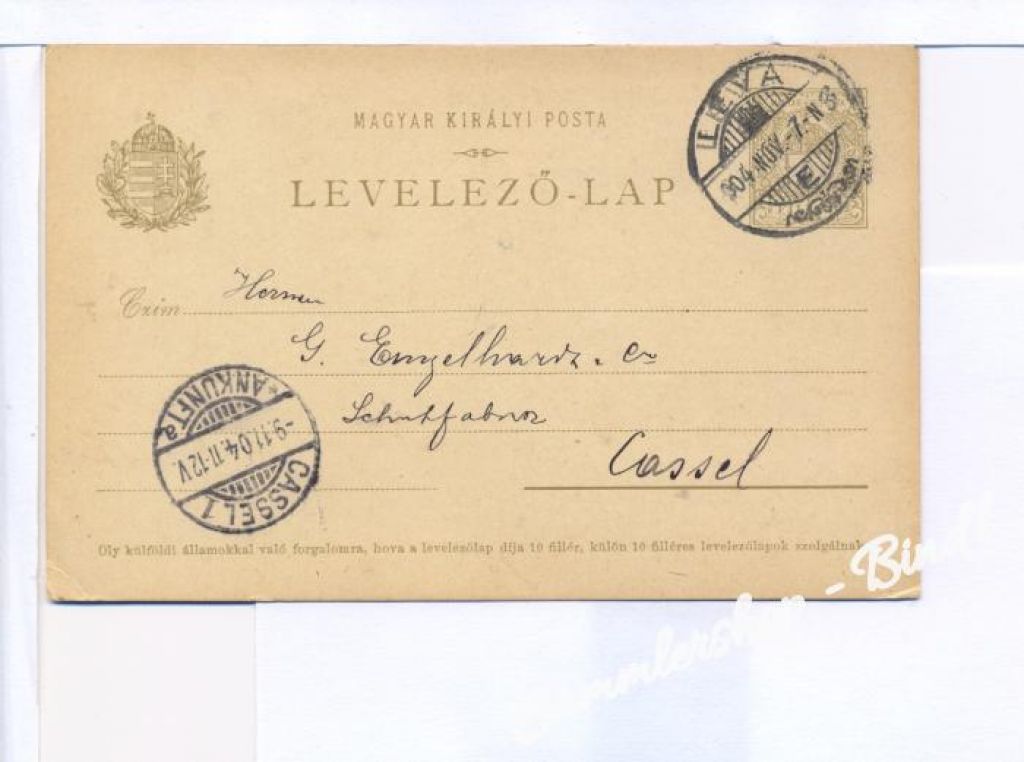 MAGYAR KIRÁLYI POSTA
LEVELEZŐ-LAP
LÉVA
904 NOV. -7.-N3
E
Czim
Herren
G. Engelhardt & Co
Cassel
ANKUNFT a
-9.11.04.11-12V.
CASSEL 1
Oly külföldi államokkal való forgalomra, hova a levelezőlap díja 10 fillér, külön 10 filléres levelezőlapok szolgálnak
Sammlershop - Bind